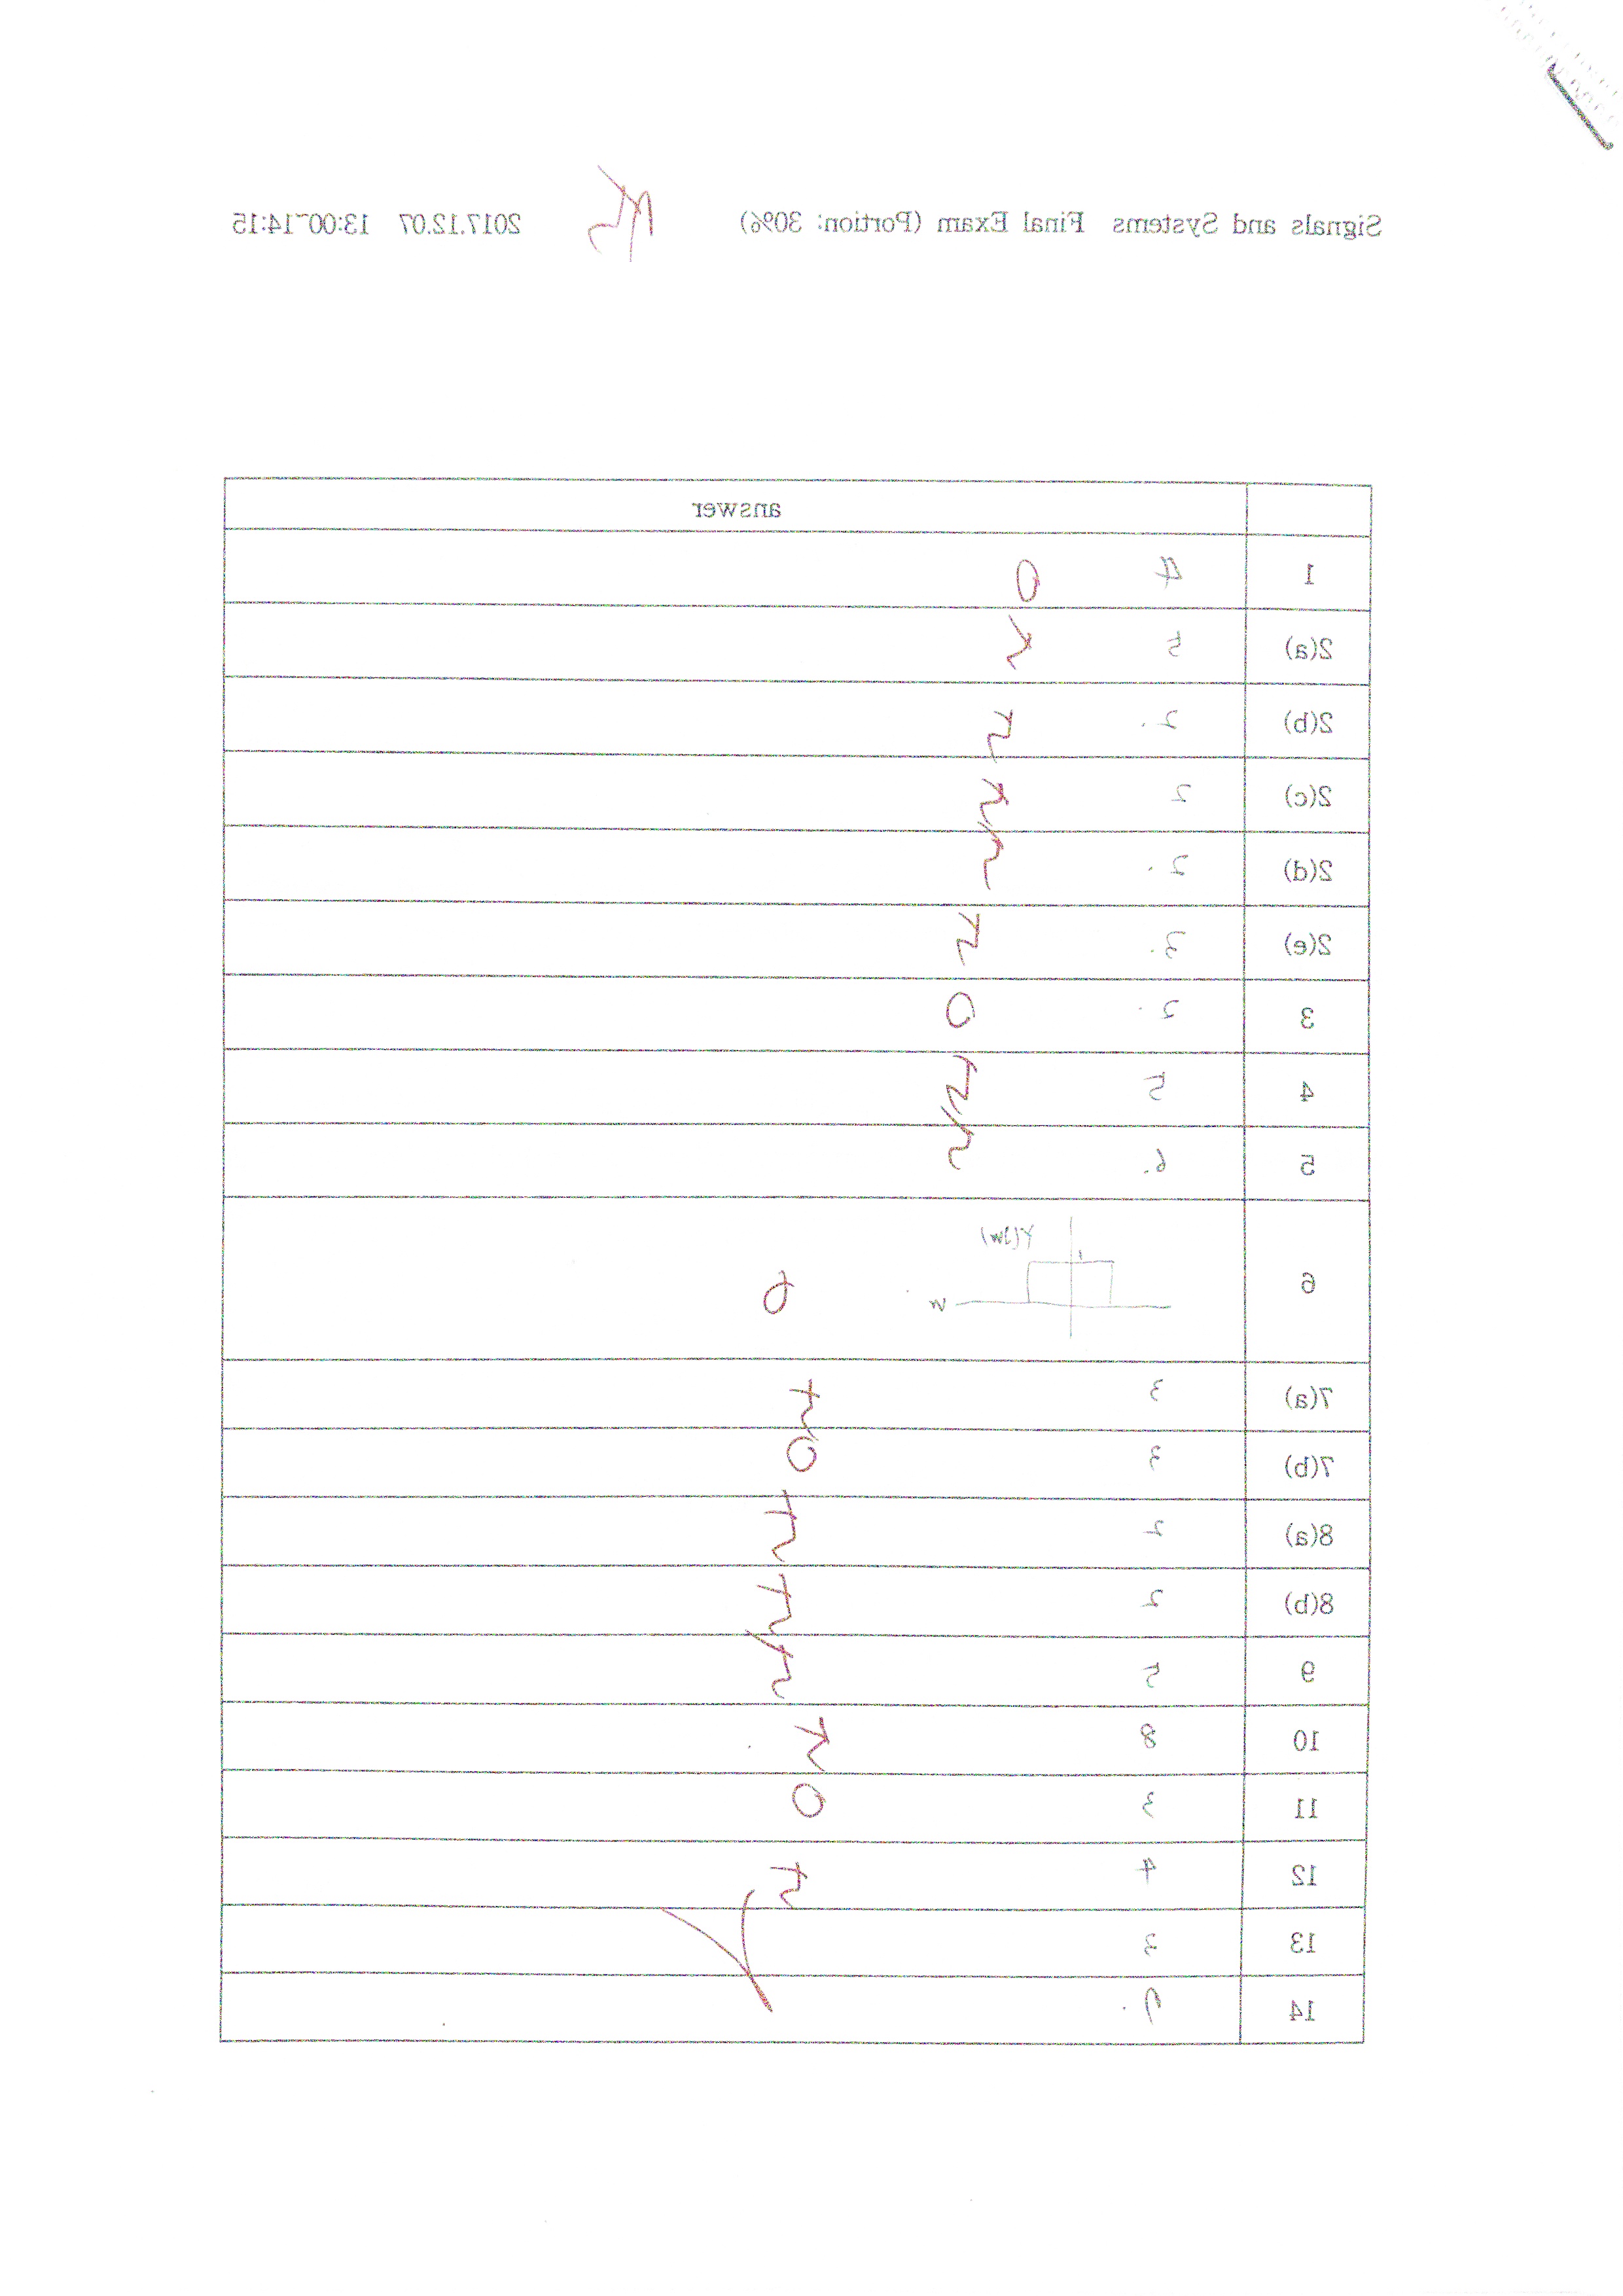 Signals and Systems Final Exam (Portion: 30%) 2017.12.07 13:00~14:15
answer
1 4 0
2(a) 5
2(b) 2.
2(c) 2
2(d) 2.
2(e) 3.
3 2. 0
4 5
5 6.
6 Y(jw) 1 w
7(a) 3
7(b) 3 0
8(a) 2
8(b) 2
9 5
10 8
11 3 0
12 4
13 3
14